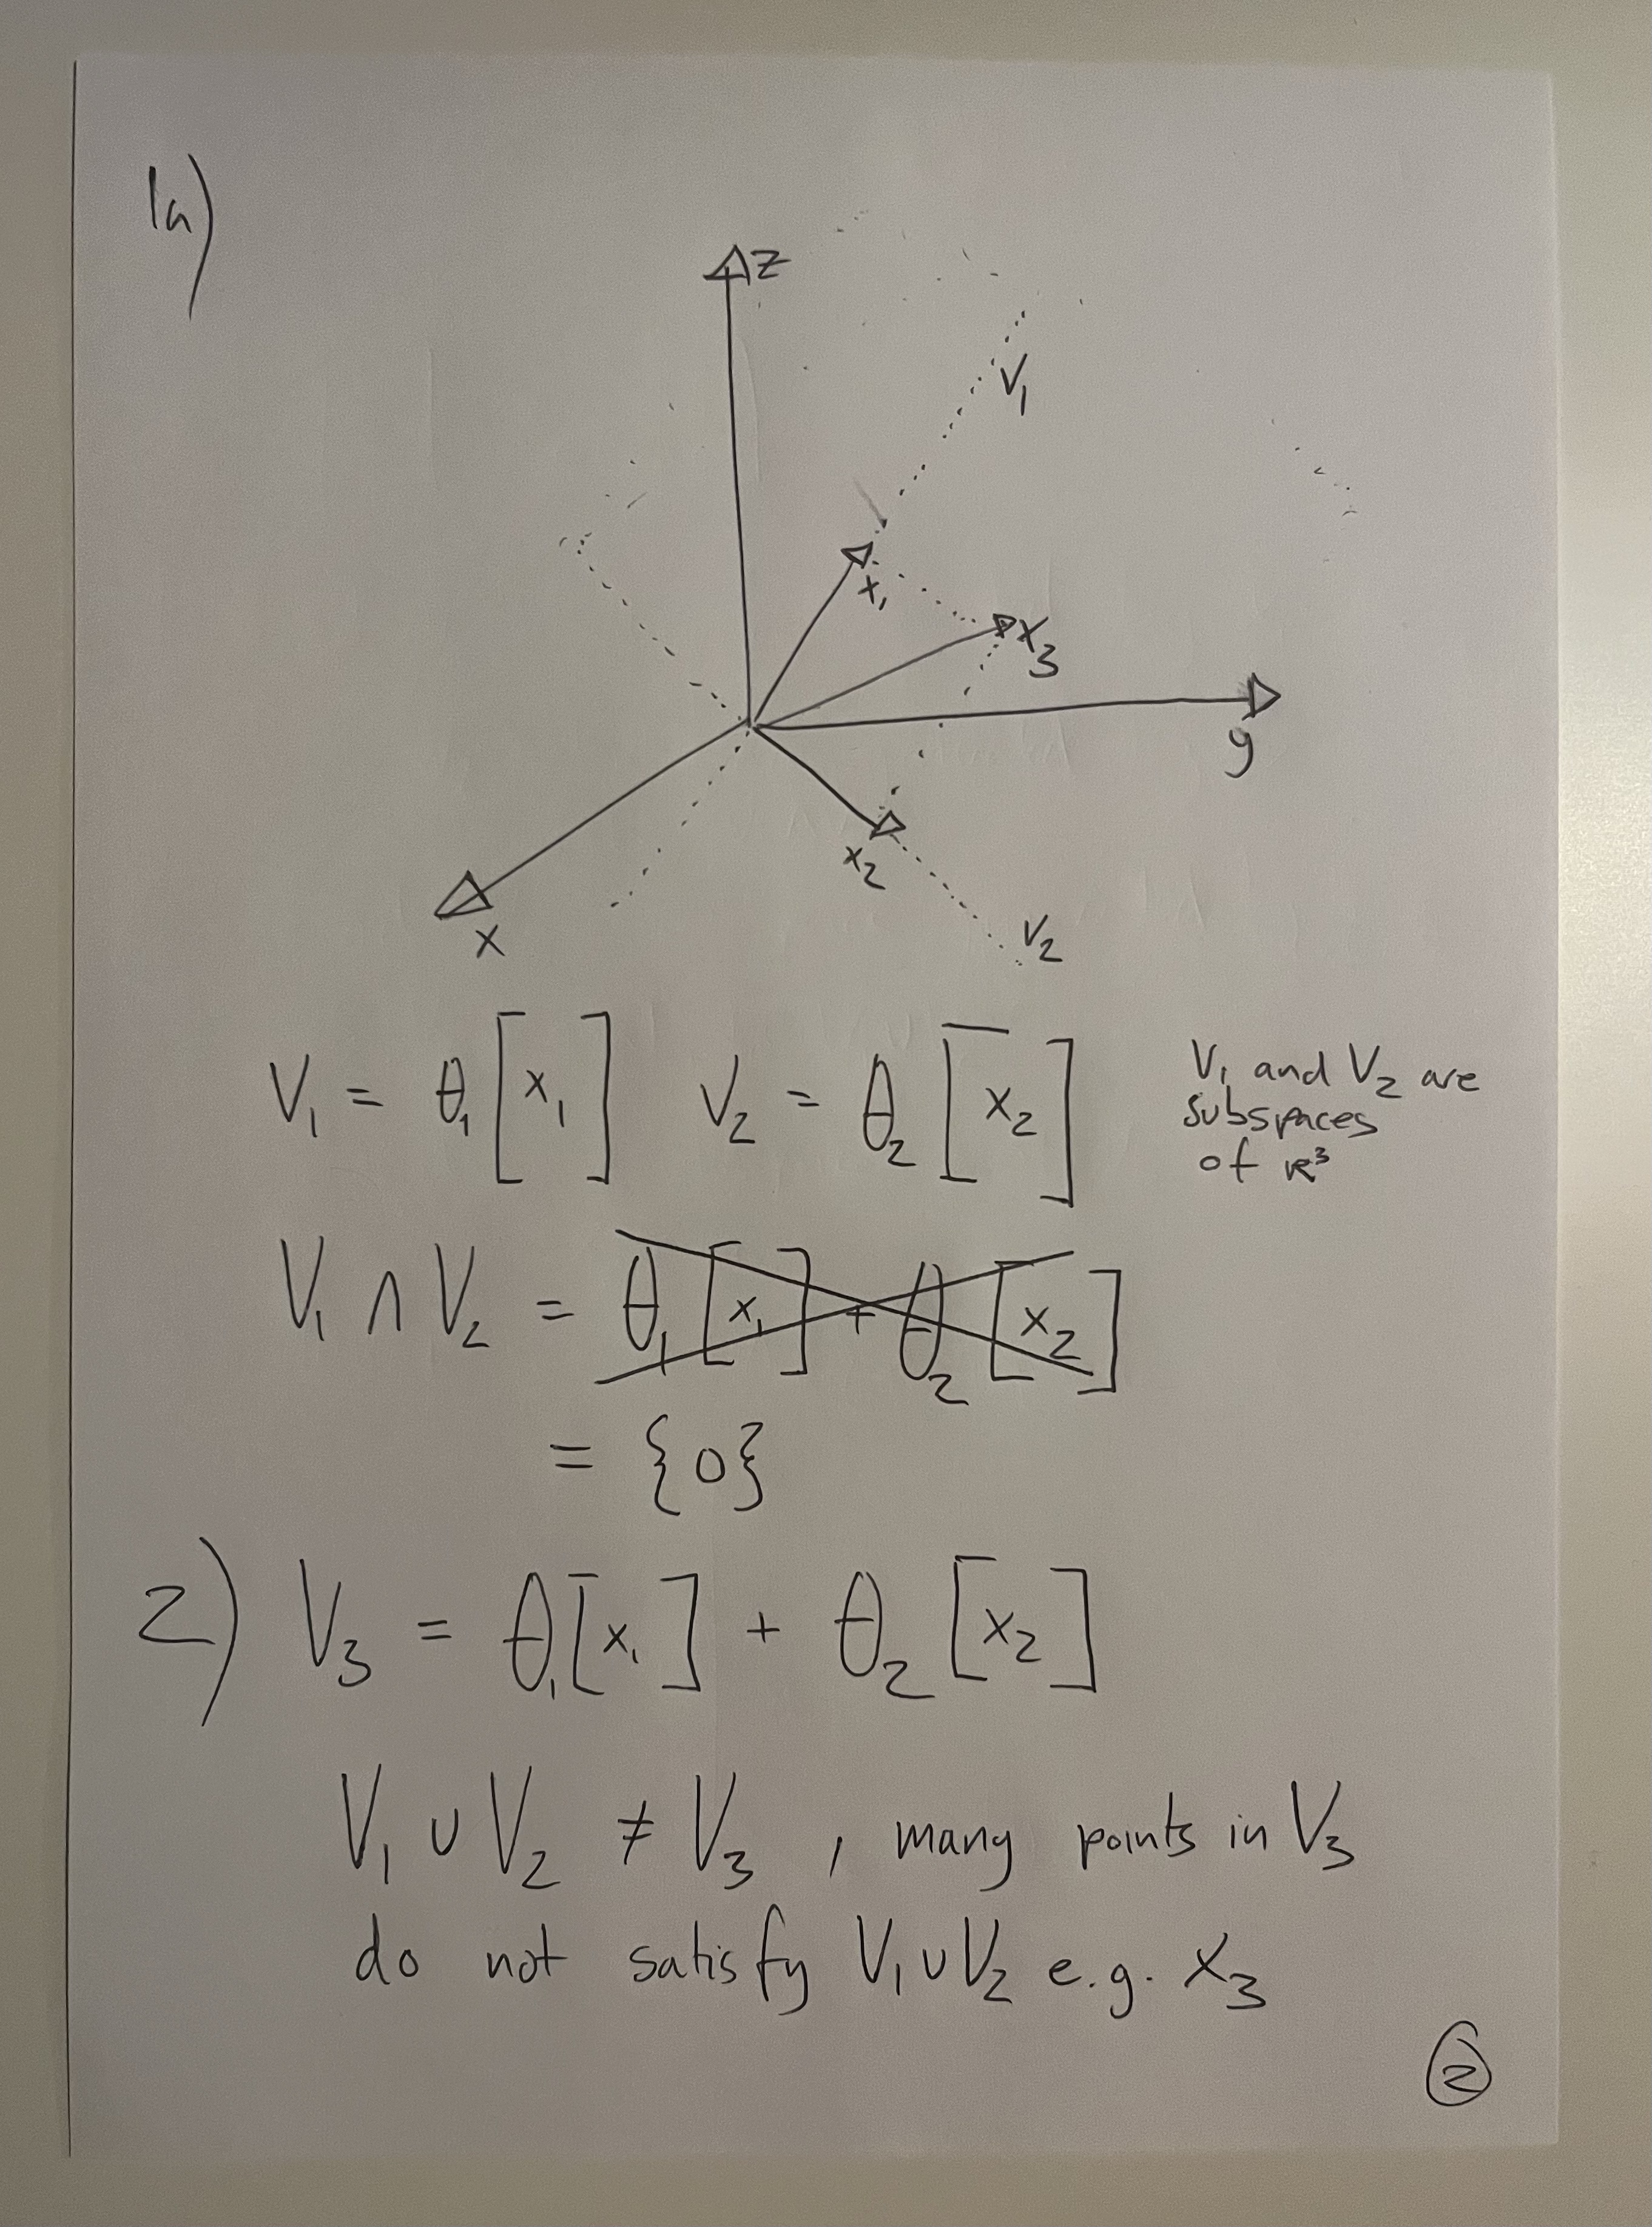 1a)
z
V₁
x₁
x₃
y
x₂
x
V₂
V₁ = θ₁[x₁] V₂ = θ₂[x₂]
V₁ and V₂ are
subspaces
of ℝ³
V₁ ∩ V₂ = θ₁[x₁] + θ₂[x₂]
= {0}
2) V₃ = θ₁[x₁] + θ₂[x₂]
V₁ ∪ V₂ ≠ V₃ , many points in V₃
do not satisfy V₁∪V₂ e.g. x₃
2